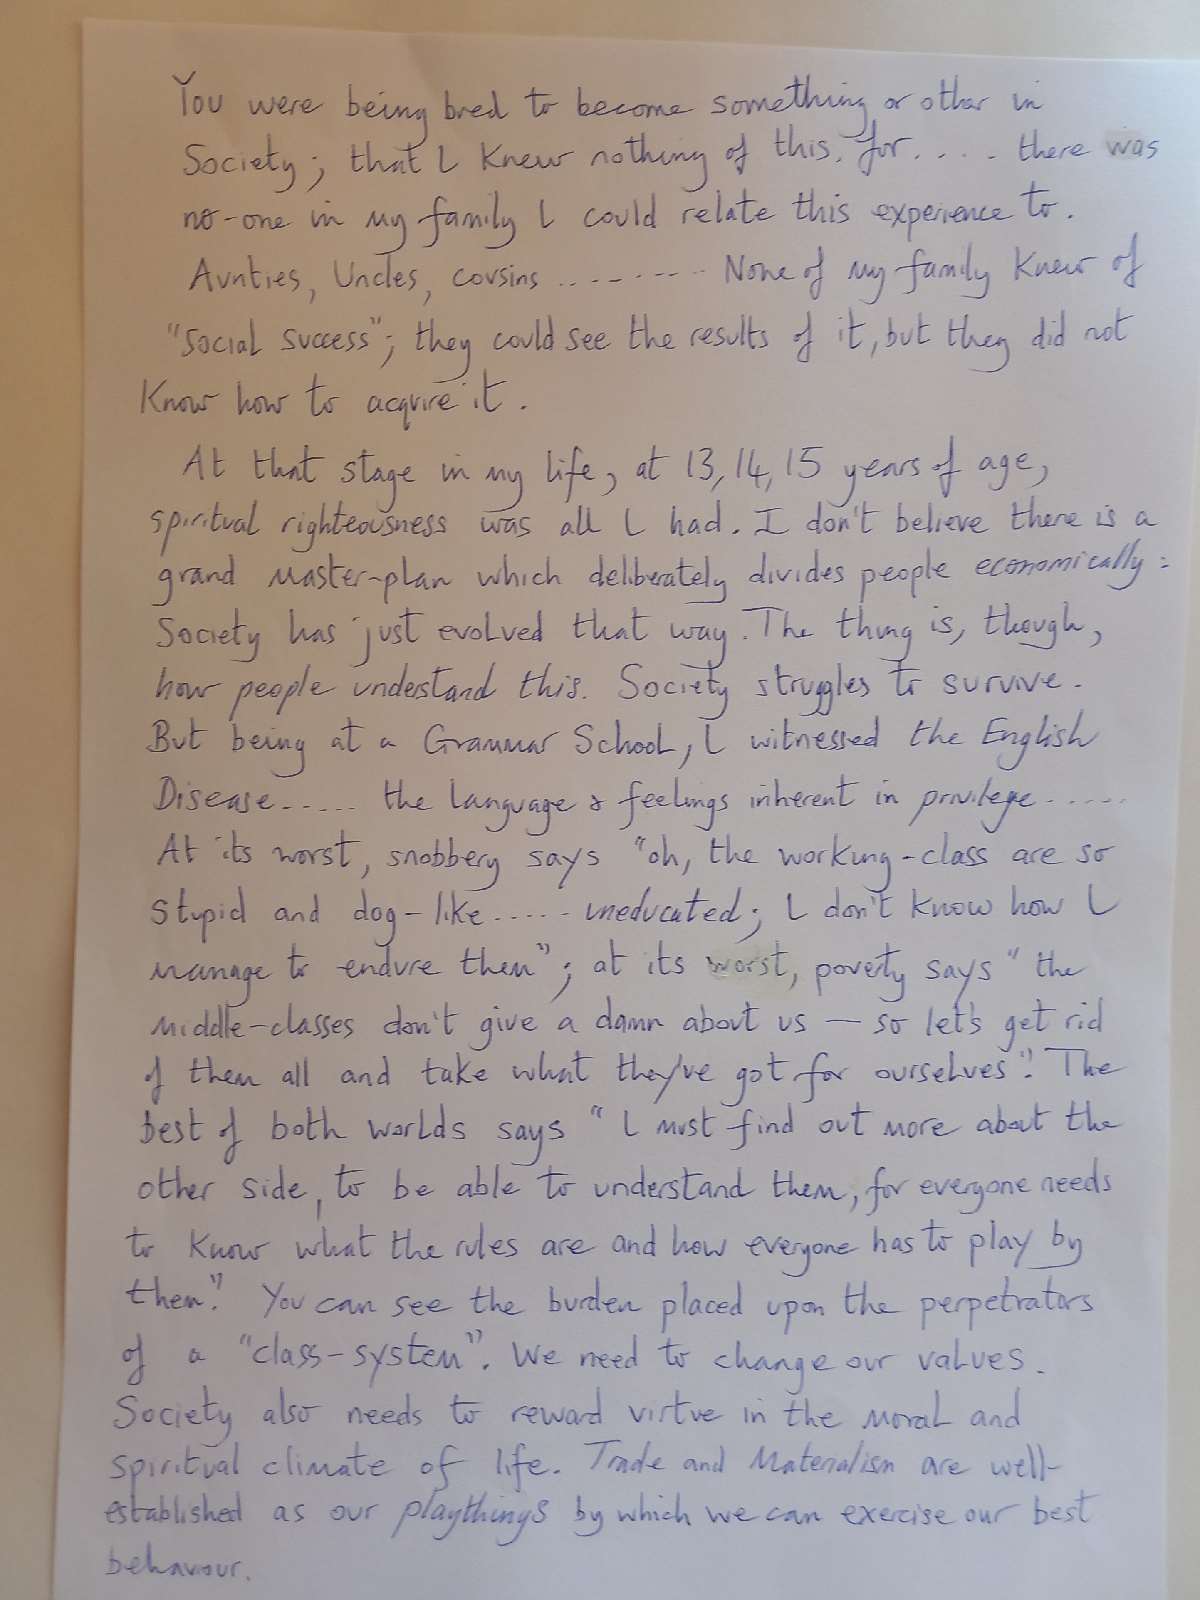 You were being bred to become something or other in
Society; that I knew nothing of this, for.... there was
no-one in my family I could relate this experience to.
Aunties, Uncles, cousins ........ None of my family knew of
"social success"; they could see the results of it, but they did not
know how to acquire it.
At that stage in my life, at 13, 14, 15 years of age,
spiritual righteousness was all I had. I don't believe there is a
grand master-plan which deliberately divides people economically:
Society has just evolved that way. The thing is, though,
how people understand this. Society struggles to survive.
But being at a Grammar School, I witnessed the English
Disease..... the language & feelings inherent in privilege.....
At its worst, snobbery says "oh, the working-class are so
stupid and dog-like..... uneducated; I don't know how I
manage to endure them"; at its worst, poverty says "the
middle-classes don't give a damn about us — so let's get rid
of them all and take what they've got for ourselves". The
best of both worlds says "I must find out more about the
other side, to be able to understand them, for everyone needs
to know what the rules are and how everyone has to play by
them". You can see the burden placed upon the perpetrators
of a "class-system". We need to change our values.
Society also needs to reward virtue in the moral and
spiritual climate of life. Trade and Materialism are well-
established as our playthings by which we can exercise our best
behaviour.